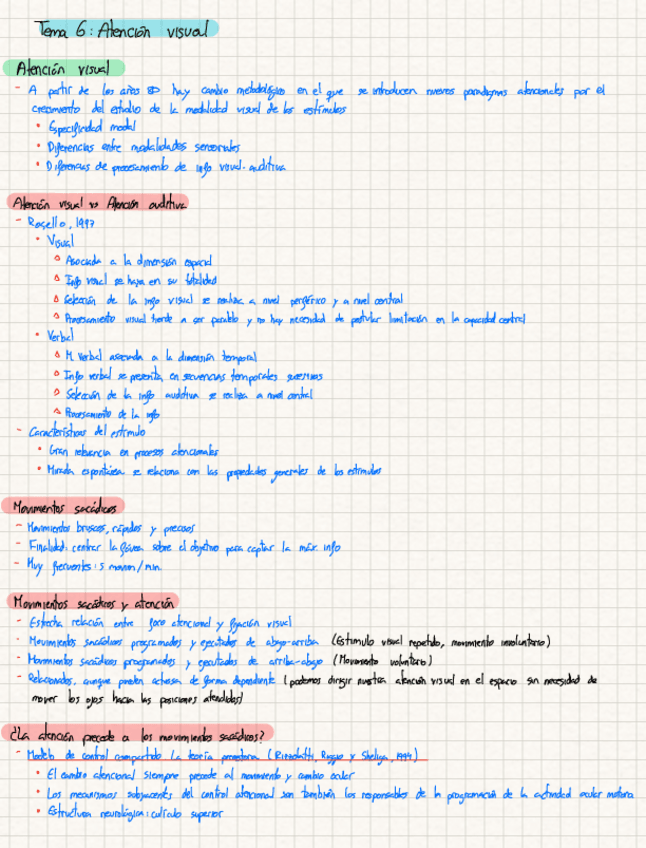 Tema 6: Atención visual
Atención visual
- A partir de los años 80 hay cambio metodológico en el que se introducen nuevos paradigmas atencionales por el
crecimiento del estudio de la modalidad visual de los estímulos
• Especificidad modal
• Diferencias entre modalidades sensoriales
• Diferencias de procesamiento de info visual-auditiva
Atención visual vs Atención auditiva
- Rosello, 1997
• Visual
Asociada a la dimensión espacial
Info visual se haya en su totalidad
Selección de la info visual se realiza a nivel periférico y a nivel central
Procesamiento visual tiende a ser paralelo y no hay necesidad de postular limitación en la capacidad central
• Verbal
M. Verbal asociada a la dimensión temporal
Info verbal se presenta en secuencias temporales sucesivas
Selección de la info auditiva se realiza a nivel central
Procesamiento de la info
- Características del estímulo
• Gran relevancia en procesos atencionales
• Mirada espontánea se relaciona con las propiedades generales de los estímulos
Movimientos sacádicos
- Movimientos bruscos, rápidos y precisos
- Finalidad: centrar la fóvea sobre el objetivo para captar la máx. info
- Muy frecuentes: 5 movim/min.
Movimientos sacádicos y atención
- Estrecha relación entre foco atencional y fijación visual
- Movimientos sacádicos programados y ejecutados de abajo-arriba (Estímulo visual repetido, movimiento involuntario)
- Movimientos sacádicos programados y ejecutados de arriba-abajo (Movimiento voluntario)
- Relacionados, aunque pueden actuar de forma dependiente (podemos dirigir nuestra atención visual en el espacio sin necesidad de
mover los ojos hacia las posiciones atendidas)
¿La atención precede a los movimientos sacádicos?
- Modelo de control compartido la teoría premotora (Rizzolatti, Riggio y Sheliga, 1994)
• El cambio atencional siempre precede al movimiento y cambio ocular
• Los mecanismos subyacentes del control atencional son también los responsables de la programación de la actividad ocular motora
• Estructura neurológica: colículo superior